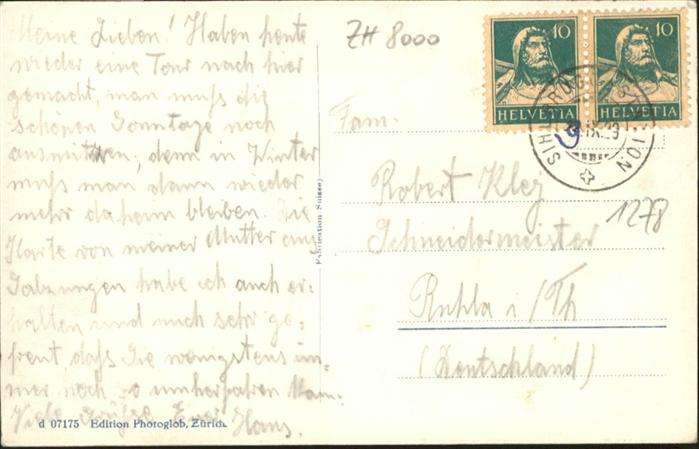 Meine Lieben! Haben heute
wieder eine Tour nach hier
gemacht, man muß die
schönen Sonntage noch
ausnützen, denn im Winter
muß man dann wieder
mehr daheim bleiben. Die
Karte von meiner Mutter aus
Salzungen habe ich auch er-
halten und mich sehr ge-
freut, daß Sie wenigstens im-
mer noch so umherfahren kann.
Viele Grüße Euer Hans.
d 07175 Edition Photoglob, Zürich.
ZH 8000
10 10
HELVETIA HELVETIA
IX.29
SIHL
STATION
1278
Fam.
Robert Klej
Schneidermeister
Ruhla i/Th
(Deutschland)